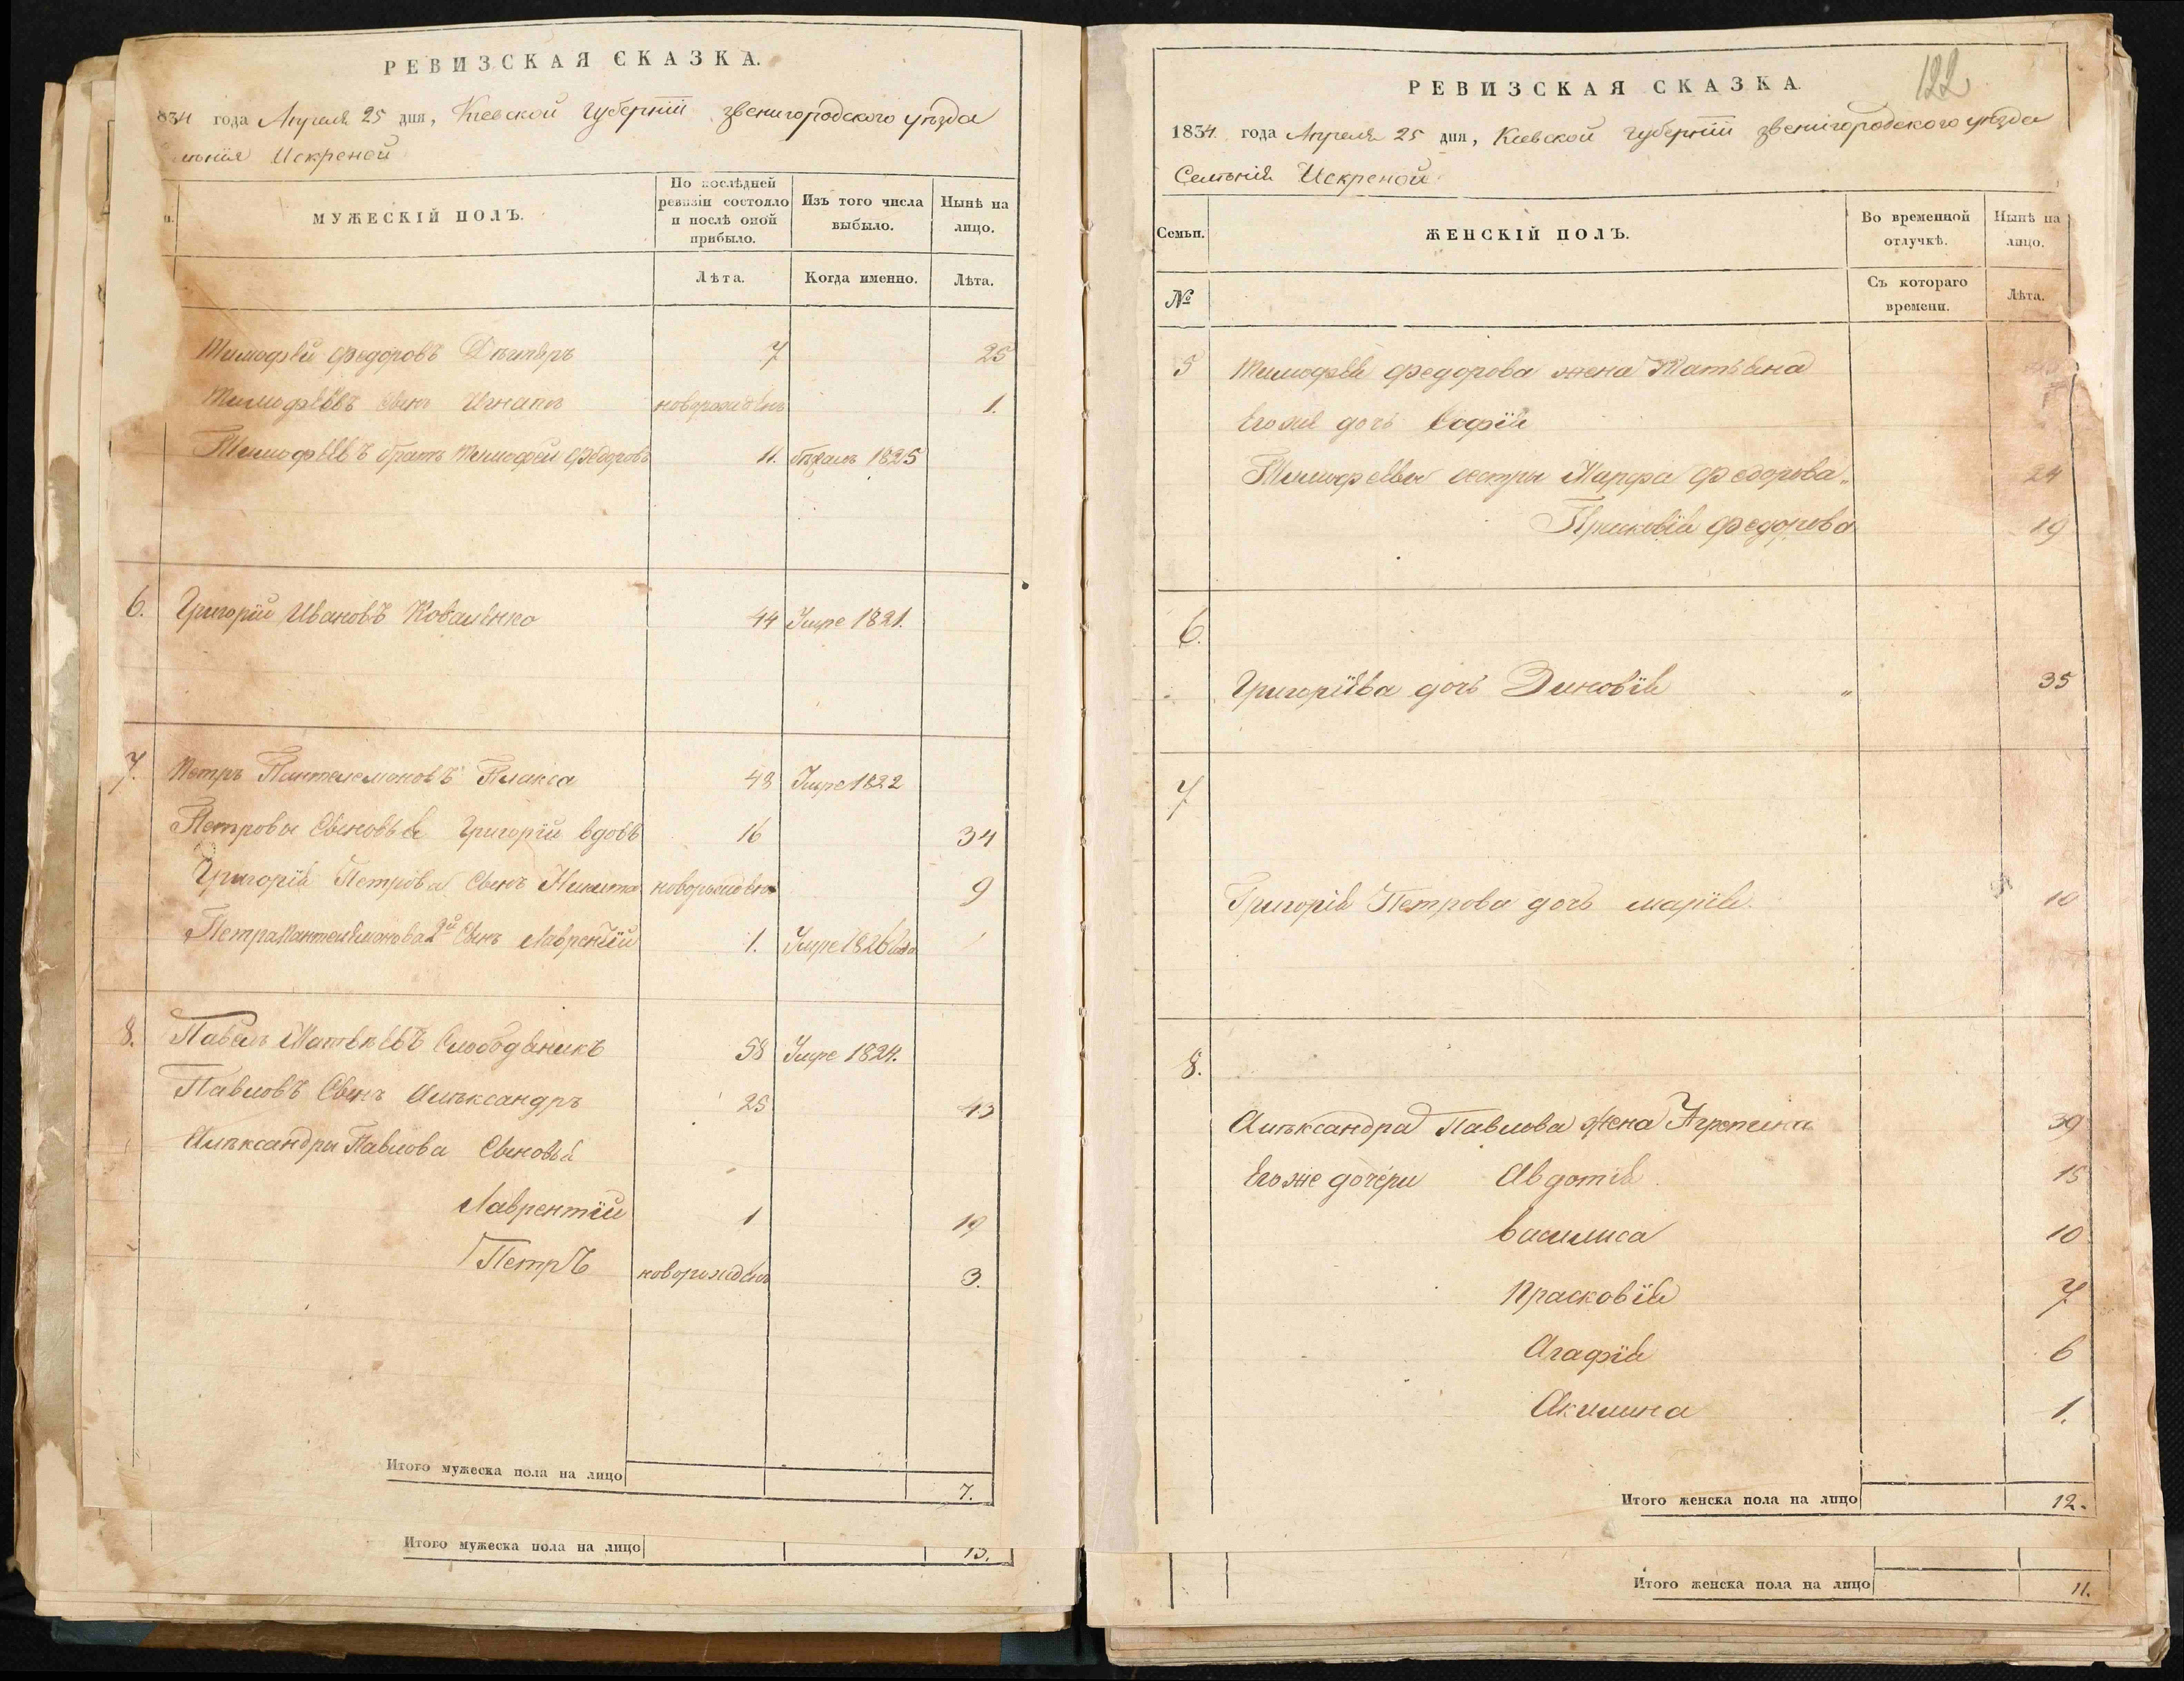 РЕВИЗСКАЯ СКАЗКА.
834 года Апреля 25 дня, Киевской губернїи звенигородского уѣзда
Искреной
МУЖЕСКІЙ ПОЛЪ.
По послѣдней ревизіи состояло и послѣ оной прибыло.
Изъ того числа выбыло.
Нынѣ на лицо.
Лѣта.
Когда именно.
Лѣта.
Тимофѣй Федоровъ 7 25
Тимофѣевъ Сынъ Игнатъ новорожденъ 1.
Тимофѣевъ братъ Тимофей Федоровъ 11. бѣжалъ 1825
6. Григорїй Ивановъ Коваленко 44 Умре 1821.
7. Петръ Пантелемоновъ Плакса 43 Умре 1822
Петровы Сыновья Григорїй вдовъ 16 34
Григорїя Петрова Сынъ Никита новорожденъ 9
Петра Пантелемонова 2й Сынъ Лаврентїй 1. Умре 1826 года
8. Павелъ Матвѣевъ Слободяникъ 58 Умре 1824.
Павловъ Сынъ Алѣксандръ 25 43
Алѣксандры Павлова Сыновья
Лаврентїй 1 19
Петръ новорожденъ 3.
Итого мужеска пола на лицо 7.
Итого мужеска пола на лицо 13.
122
РЕВИЗСКАЯ СКАЗКА.
1834 года Апреля 25 дня, Киевской губернїи звенигородского уѣзда
Селенїя Искреной
Семьи.
ЖЕНСКІЙ ПОЛЪ.
Во временной отлучкѣ.
Нынѣ на лицо.
№
Съ котораго времени.
Лѣта.
5 Тимофея Федорова жена Татьяна
Егоже дочь Софїя
Тимофеевы сестры Марфа Федорова „ 24
Прасковїя Федорова 19
6.
Григорїева дочь Зиновїя „ 35
7
Григорїя Петрова дочь марїя 10
8.
Алѣксандра Павлова жена Агрепина 39
Егоже дочери Авдотїя 15
Василиса 10
Прасковїя 7
Агафїя 6
Акилина 1.
Итого женска пола на лицо 12.
Итого женска пола на лицо 11.